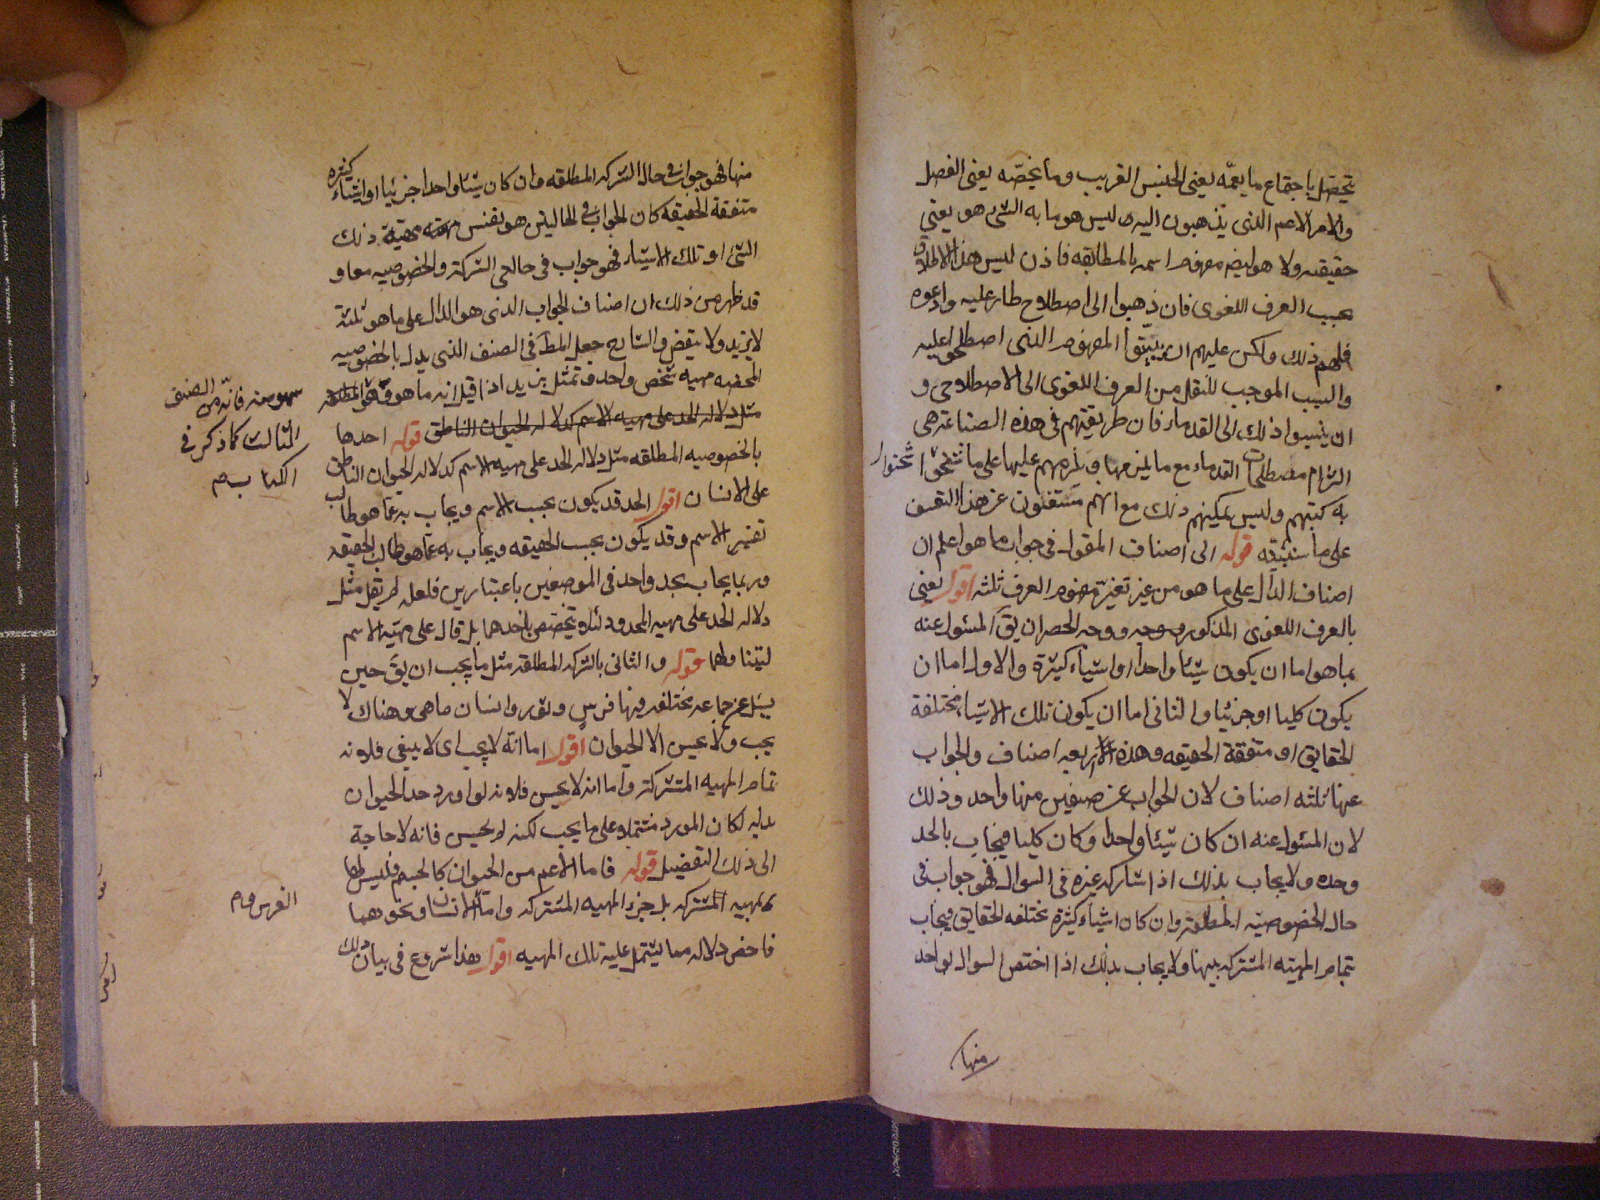 يتحصل باجتماع ما يعمّه يعنى الجنس القريب وما يخصّه يعنى الفصل
والامر الاعم الذى يذهبون اليه ليس هو ما به الشئ هو يعنى
حقيقته ولا هو ايضا مفهوم اسمه بالمطابقه فاذن ليس هذا الاطلاق
بحسب العرف اللغوى فان ذهبوا الى اصطلاح طار عليه وادعوه
فلهم ذلك ولكن عليهم ان يبيّنوا المفهوم الذى اصطلحوا عليه
والسبب الموجب للنقل من العرف اللغوى الى الاصطلاحى و
ان ينسبوا ذلك الى القدماء فان طريقتهم فى هذه الصناعة هى
التزام مصطلحات القدماء مع ما يلزمها ويلزمهم عليها على ما شحنوا
به كتبهم وليس يمكنهم ذلك مع انهم مستغنون عن هذا التعسف
على ما سنبيّنه قوله الى اصناف المقول فى جواب ما هو اعلم ان
اصناف الدالّ على ما هو من غير تغيّر مفهوم العرف ثلثه اقول يعنى
بالعرف اللغوى المذكور ووجه الحصر ان يقَ المسئول عنه
بما هو اما ان يكون شيئا واحدا او اشياء كثيرة والاول اما ان
يكون كليا او جزئيا والثانى اما ان يكون تلك الاشياء مختلفة
الحقايق او متفقة الحقيقه وهذه الاربعه اصناف والجواب
عنها ثلثه اصناف لان الجواب عن صنفين منها واحد وذلك
لان المسئول عنه ان كان شيئا واحدا وكان كليا فيجاب بالحد
وحده ولا يجاب بذلك اذا شاركه غيره فى السوال فهو جواب فى
حال الخصوصيّه المطلقة وان كان اشياء كثيرة مختلفه الحقايق فيجاب
بتمام المهيّه المشتركه بينها ولا يجاب بذلك اذا اختص السوال بواحد
منها
منها فهو جواب فى حال الشركه المطلقه وان كان شيئا واحدا جزئيا او اشياء كثيره
متفقة الحقيقه كان الجواب فى الحالين هو بنفس مهية ذلك
الشئ او تلك الاشياء فهو جواب فى حالتى الشركة والخصوصيه معا و
قد ظهر من ذلك ان اصناف الجواب الذى هو الدال على ما هو ثلثة
لا يزيد ولا ينقص والشارح جعل فى الصنف الذى يدل بالخصوصيه
المحضه مهيه شخص واحد وتمثل بزيد اذا قيل انه ما هو
مثل دلاله الحد على مهيه الاسم كدلاله الحيوان الناطق قوله احدها
بالخصوصيه المطلقه مثل دلاله الحد على مهيه الاسم كدلاله الحيوان الناطق
على الانسان اقول الحد قد يكون بحسب الاسم ويجاب به عما هو طالب
تفسير الاسم وقد يكون بحسب الحقيقه ويجاب به عمّا هو طالب الحقيقه
وربما يجاب بحد واحد فى الموضعين باعتبارين فلعله لم يقل مثل
دلاله الحد على مهيه المحدود لئلا يختص باحدهما بل قال على مهيّه الاسم
ليتناولهما قوله والثانى بالشركه المطلقه مثل ما يجب ان يقَ حين
يسئل عن جماعه مختلفه فيها فرس وثور وانسان ما هى وهناك لا
يجب ولا يحسن الا الحيوان اقول اما انه لا يجب اى لا ينبغى فلانه
تمام المهيه المشتركة واما انه لا يحسن فلانه لو اورد حد الحيوان
بدله لكان المورد مشتملا على ما يجب لكنه لم يحسن فانه لا حاجة
الى ذلك التفصيل قوله فاما الاعم من الحيوان كالجسم فليس لها
بمهيه المشتركه بل جزء المهيه المشتركه واما الانسان ونحوهما
فاخص دلاله مما يشتمل عليه تلك المهيه اقول هذا شروع فى بيان ذلك
سهو منه فانّه من الصنف
الثالث كما ذكر فى
الكتاب م
الفرس وم